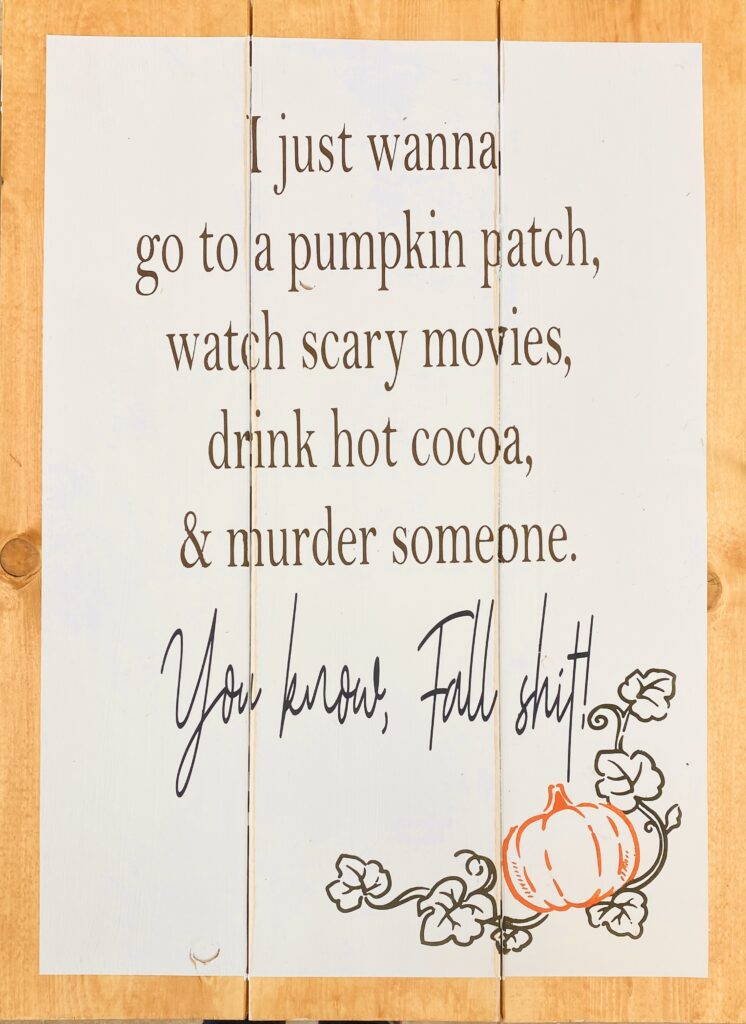 I just wanna
go to a pumpkin patch,
watch scary movies,
drink hot cocoa,
& murder someone.
You know, Fall shit!